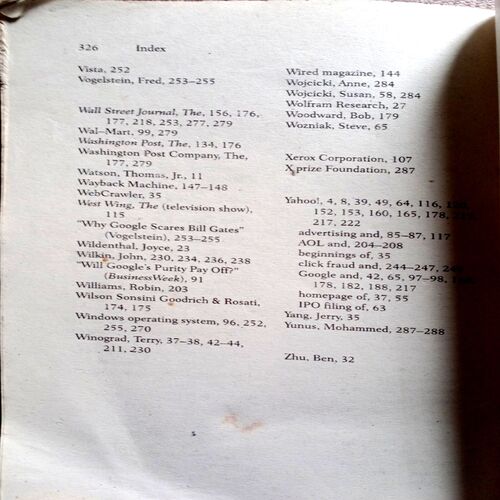 326 Index
Vista, 252
Vogelstein, Fred, 253–255
Wall Street Journal, The, 156, 176,
177, 218, 253, 277, 279
Wal-Mart, 99, 279
Washington Post, The, 134, 176
Washington Post Company, The,
177, 279
Watson, Thomas, Jr., 11
Wayback Machine, 147–148
WebCrawler, 35
West Wing, The (television show),
115
"Why Google Scares Bill Gates"
(Vogelstein), 253–255
Wildenthal, Joyce, 23
Wilkin, John, 230, 234, 236, 238
"Will Google's Purity Pay Off?"
(BusinessWeek), 91
Williams, Robin, 203
Wilson Sonsini Goodrich & Rosati,
174, 175
Windows operating system, 96, 252,
255, 270
Winograd, Terry, 37–38, 42–44,
211, 230
Wired magazine, 144
Wojcicki, Anne, 284
Wojcicki, Susan, 58, 284
Wolfram Research, 27
Woodward, Bob, 179
Wozniak, Steve, 65
Xerox Corporation, 107
X prize Foundation, 287
Yahoo!, 4, 8, 39, 49, 64, 116,
152, 153, 160, 165, 178,
217, 222
advertising and, 85–87, 117
AOL and, 204–208
beginnings of, 35
click fraud and, 244–247,
Google and, 42, 65, 97–98,
178, 182, 188, 217
homepage of, 37, 55
IPO filing of, 63
Yang, Jerry, 35
Yunus, Mohammed, 287–288
Zhu, Ben, 32